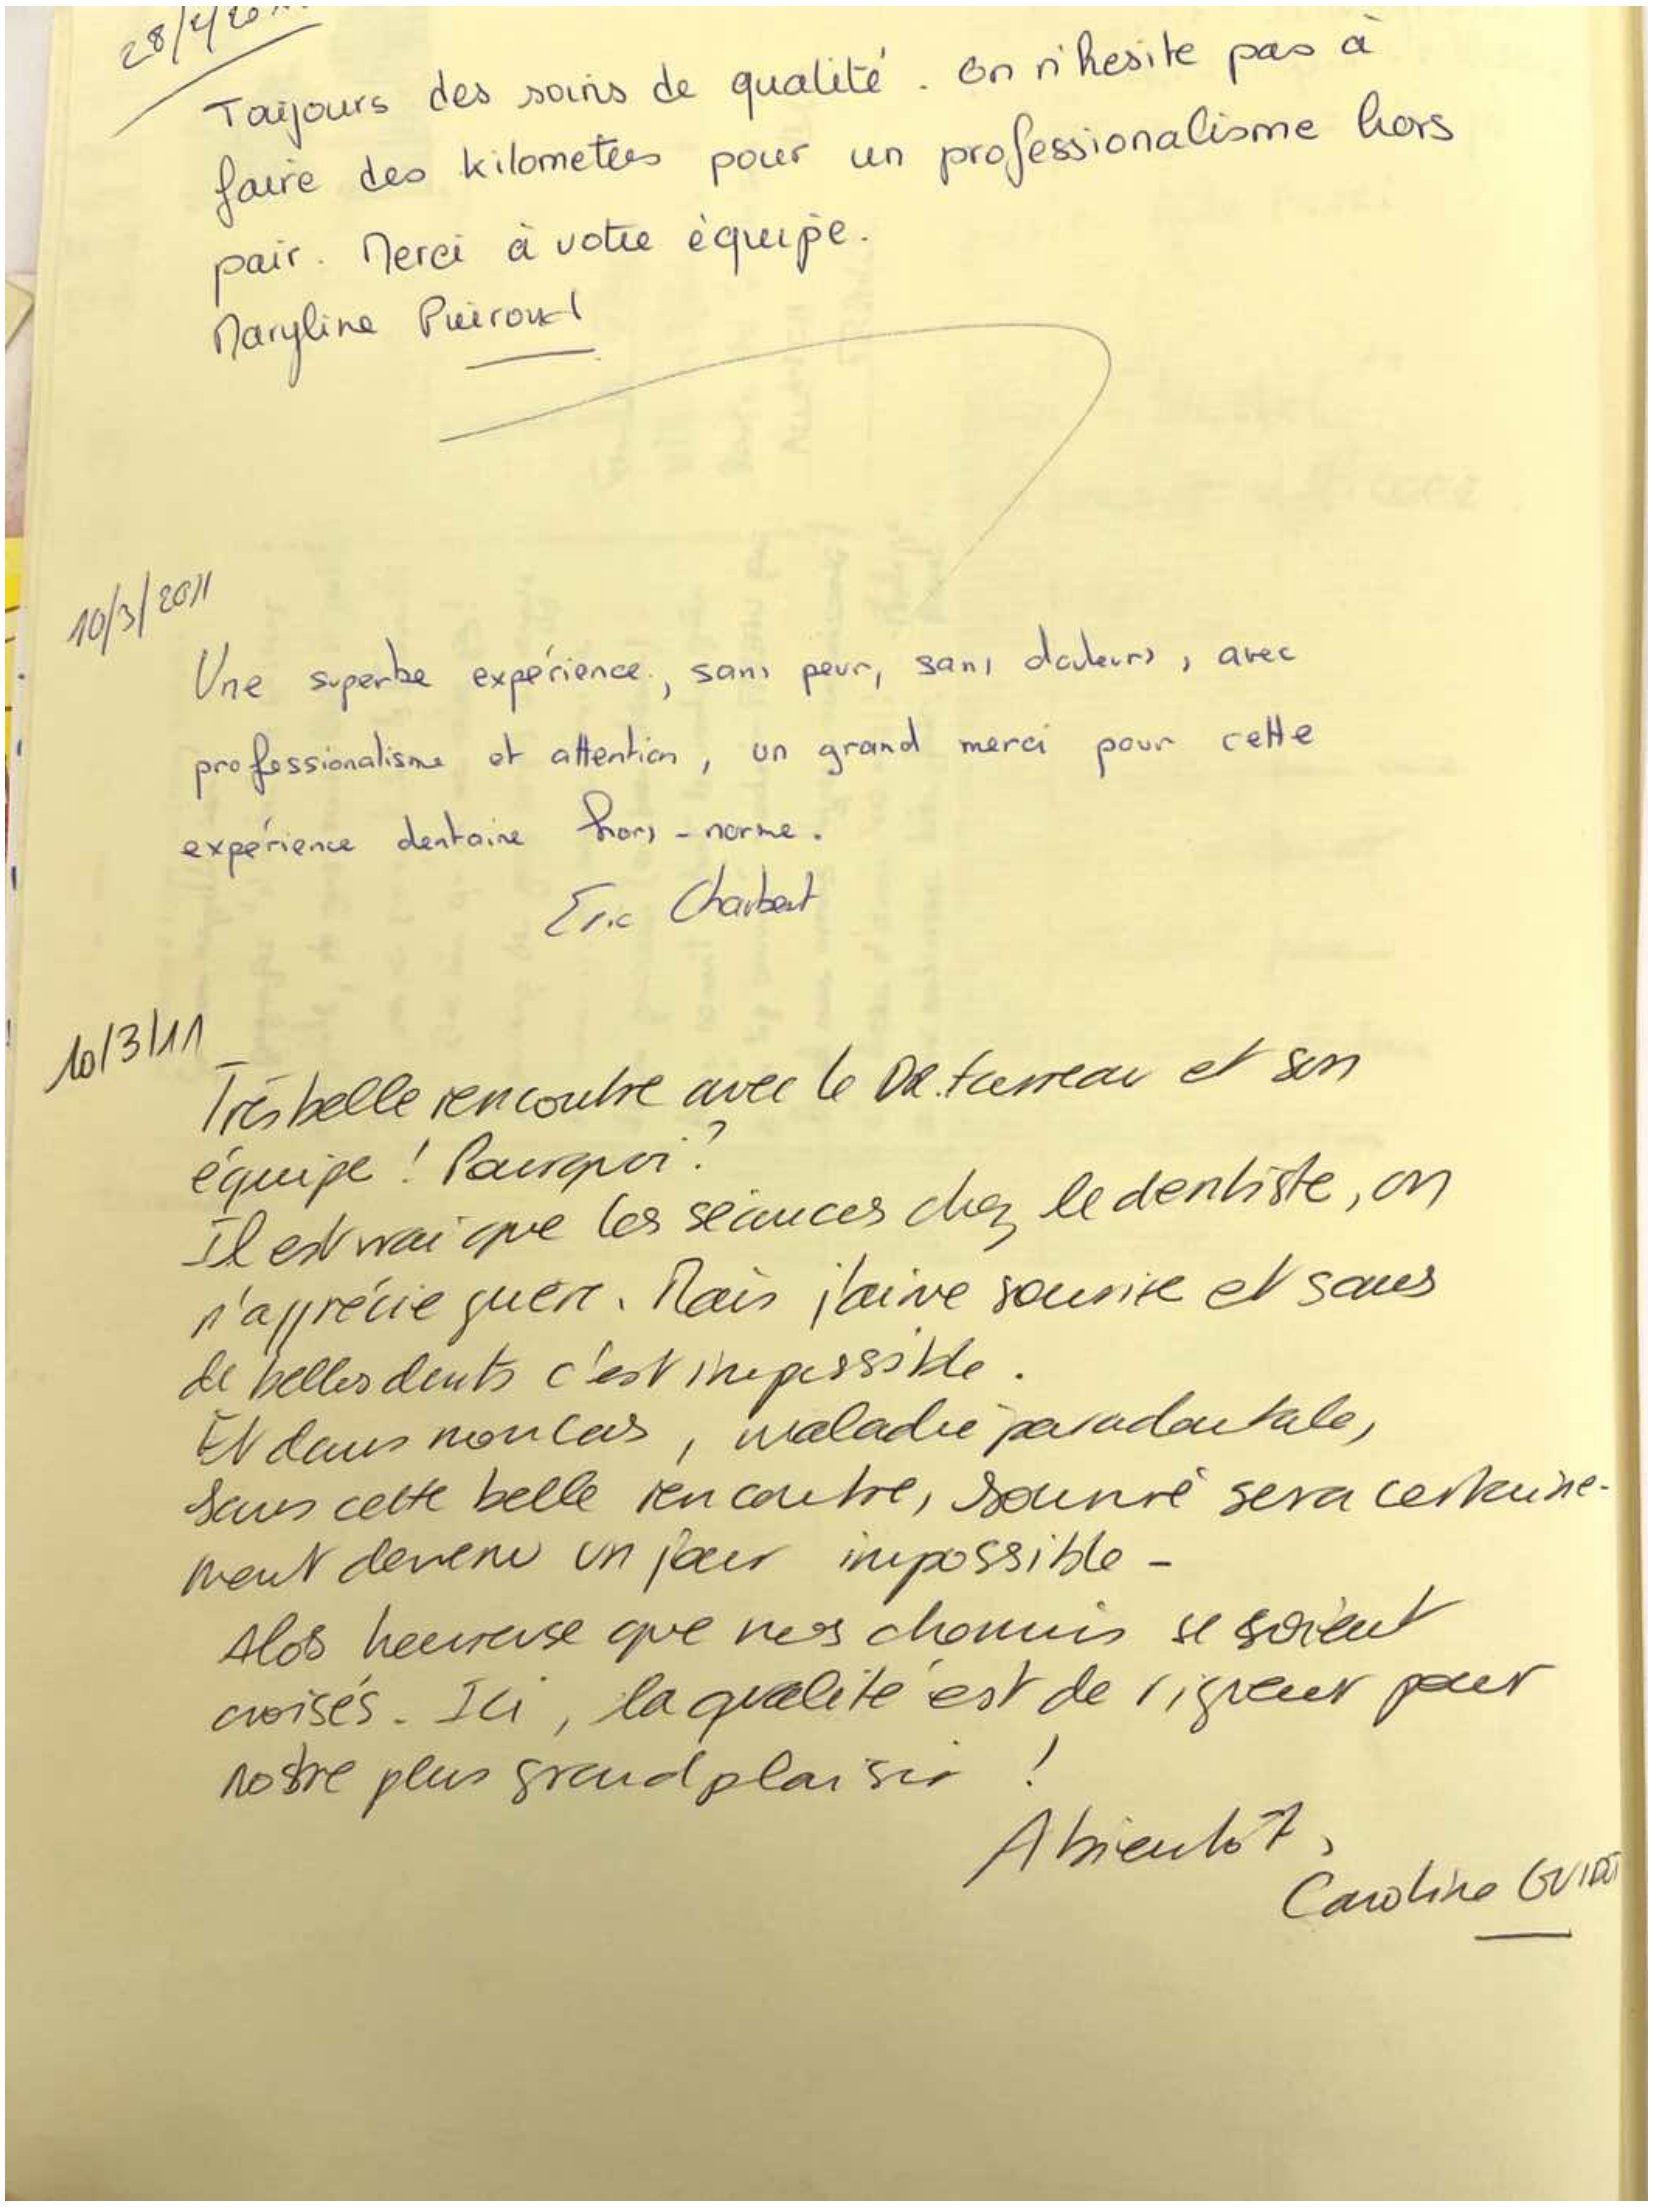 28/4/20
Toujours des soins de qualité. On n'hesite pas à
faire des kilometres pour un professionalisme hors
pair. Merci à votre équipe.
Maryline
10/3/2011
Une superbe expérience, sans peur, sans douleurs, avec
professionalisme et attention, un grand merci pour cette
expérience dentaire hors-norme.
Eric Charbert
10/3/11
Très belle rencontre avec le DR. et son
équipe ! Pourquoi ?
Il est vrai que les séances chez le dentiste, on
n'apprécie guère. Mais j'aime sourire et sans
de belles dents c'est impossible.
Et dans mon cas, maladie paradontale,
sans cette belle rencontre, sourire sera certaine-
ment devenu un jour impossible -
Alos heureuse que nos chemins se soient
croisés. Ici, la qualité est de rigueur pour
notre plus grand plaisir !
A bientôt,
Caroline